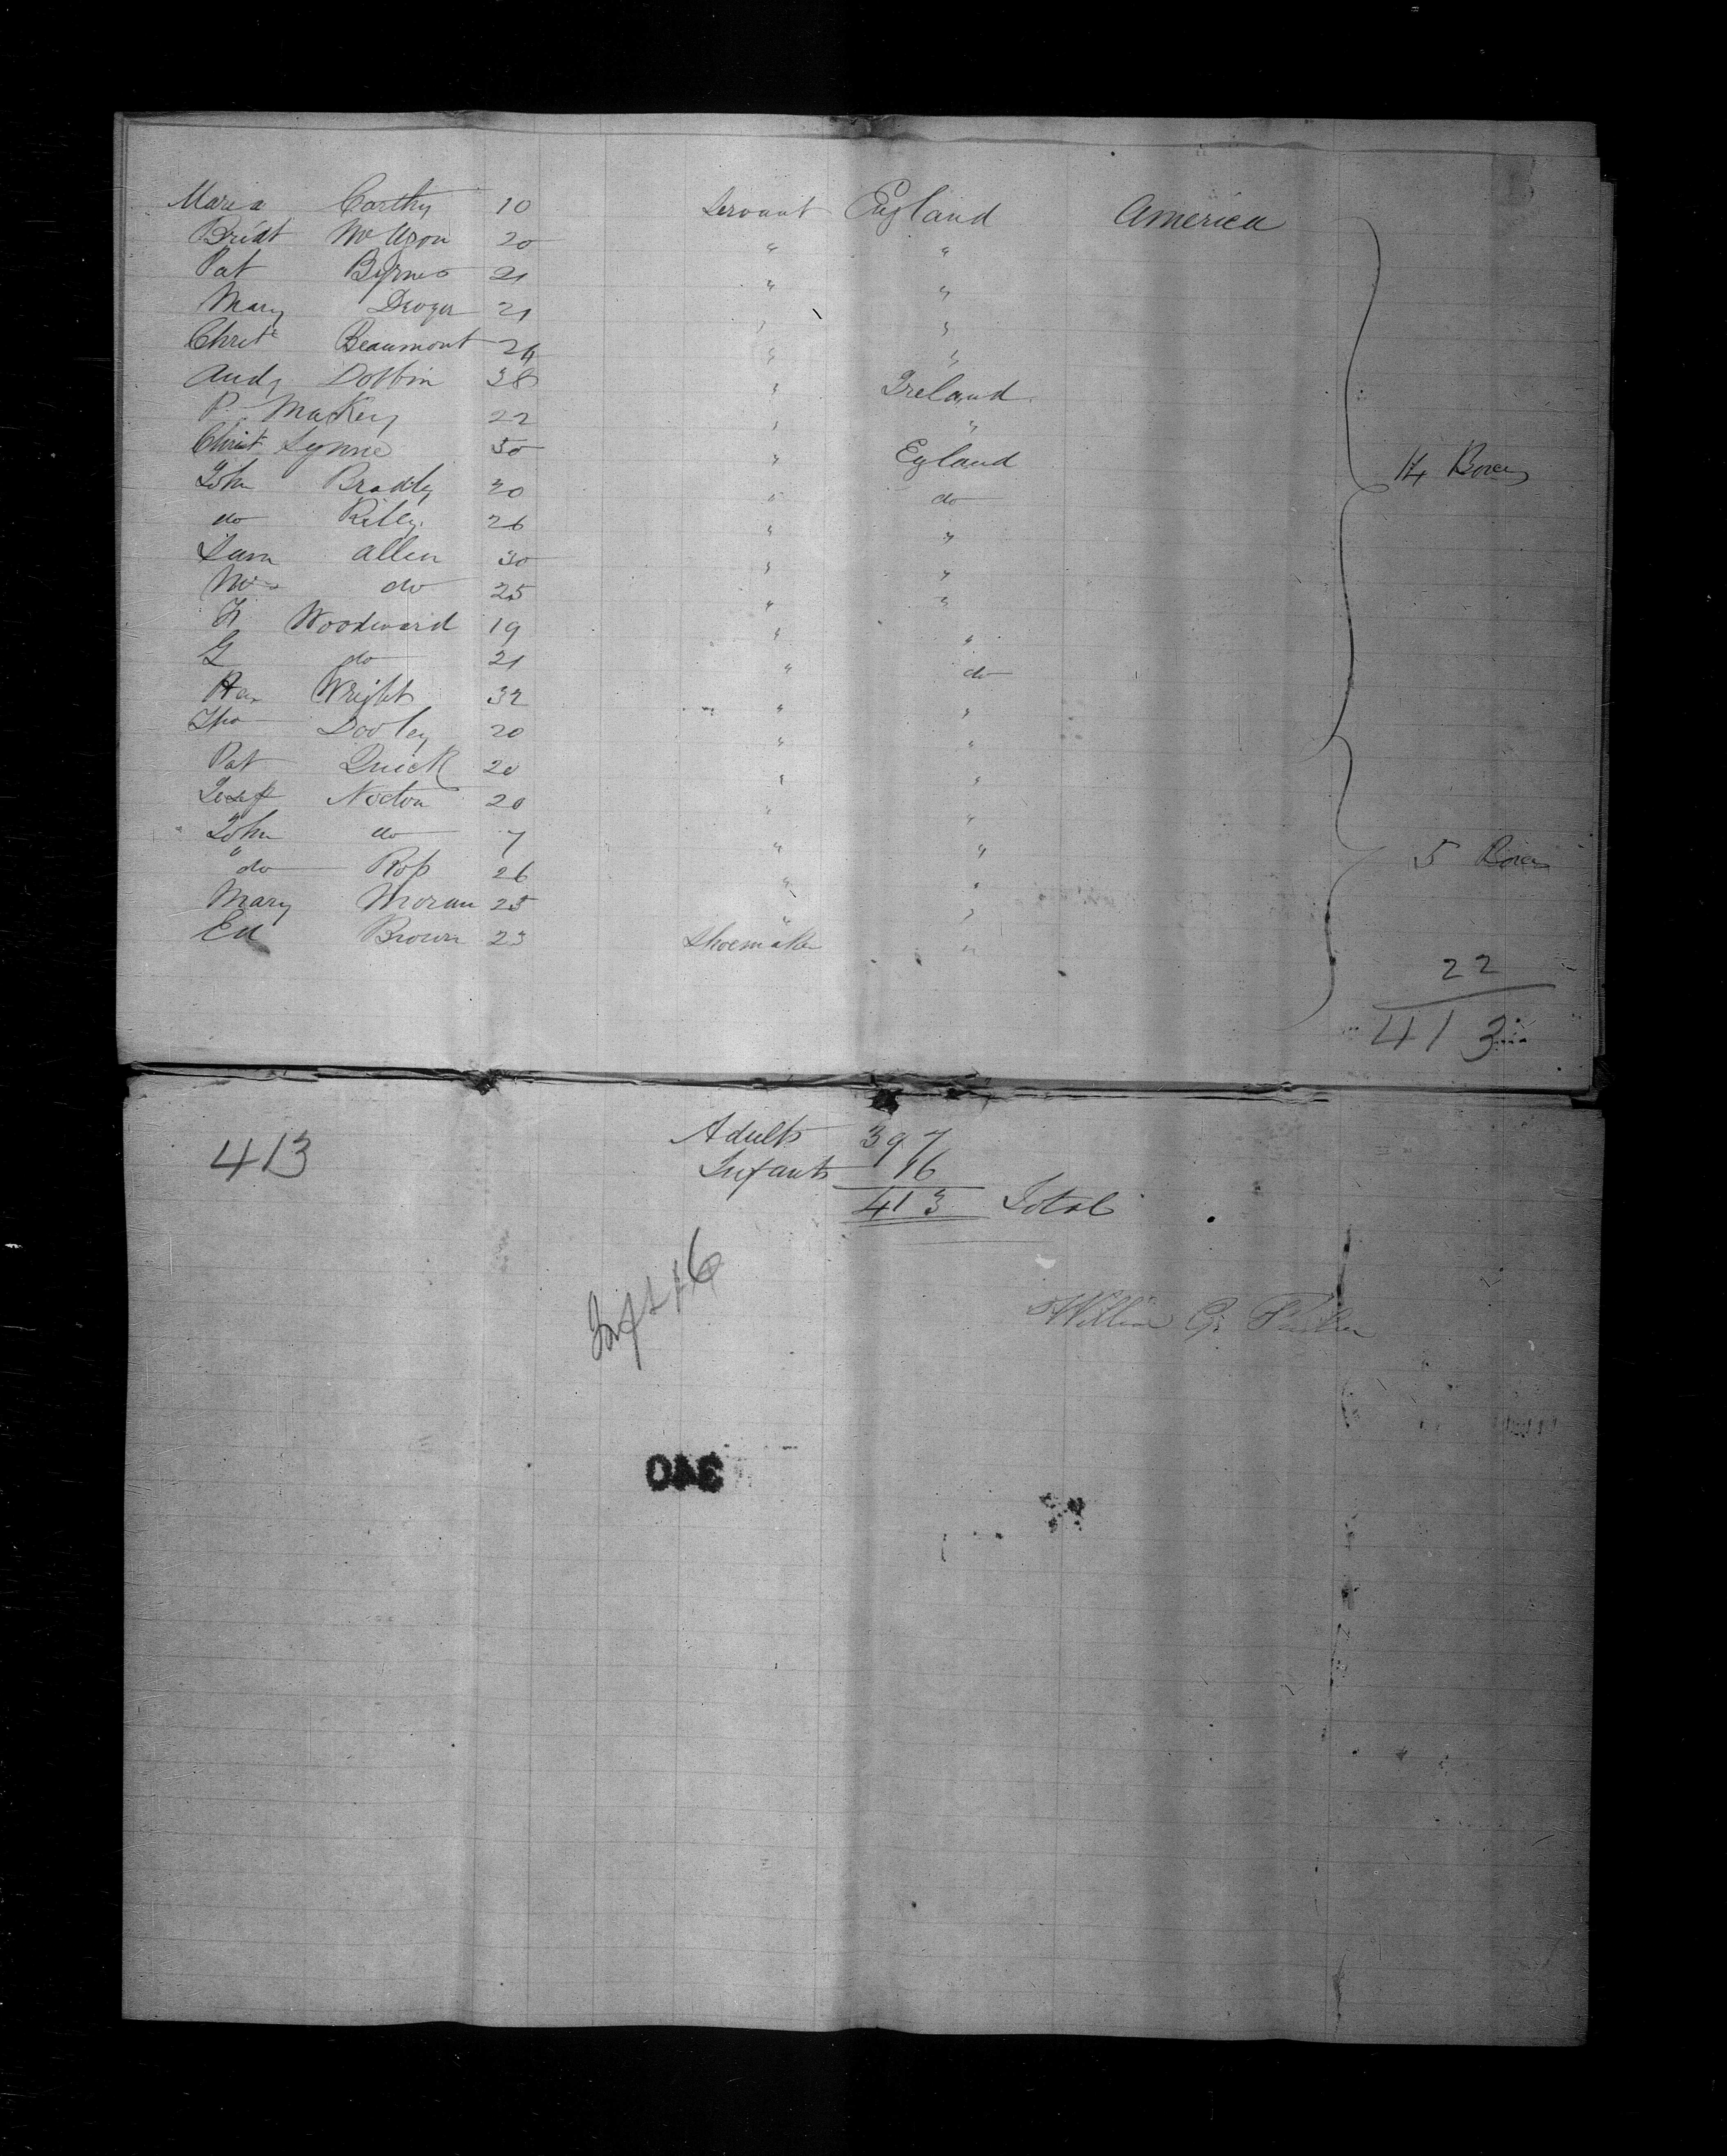 Maria Carthy 10 Servant England America
Bridt 20 " "
Pat Byrnes 21 " "
Mary 21 " "
Christe Beaumont 24 " "
Andy Dobbin 38 " Ireland
P. Mackey 22 " "
Christ Lynne 30 " England
John Bradly 20 " do
do Riley 26 " "
Sam Allen 30 " "
Mrs do 25 " "
H Woodward 19 " "
G do 21 " do
Wright 32 " "
Tho Dooley 20 " "
Pat Quick 20 " "
Josef Nocton 20 " "
John do 7 " "
do Ross 26 " "
Mary Moran 25 " "
Ed Brown 23 Shoemaker "
14 Boxes
5 Boxes
22
413
413
Adults 397
Infants 16
413 Total
Inft 16
William G.
340